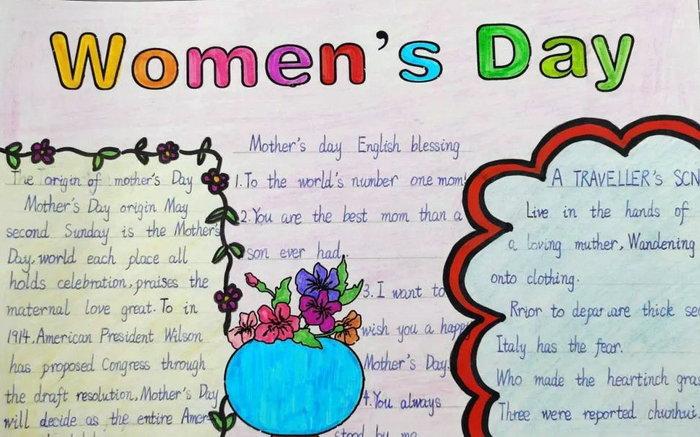 Women's Day
The origin of mother's Day
Mother's Day origin May
second Sunday is the Mothers
Day, world each place all
holds celebration, praises the
maternal love great. To in
1914. American President Wilson
has proposed Congress through
the draft resolution, Mother's Day
will decide as the entire Amer
Mother's day English blessing
1. To the world's number one mom
2. You are the best mom than a
son ever had.
3. I want to
wish you a happ
Mother's Day.
4. You always
stood by me
A TRAVELLER'S SON
Live in the hands of
a loving muther, Wandening
onto clothing.
Rrior to deparare thick se
Italy has the fear.
Who made the heartinch gras
Three were reported chunhui.